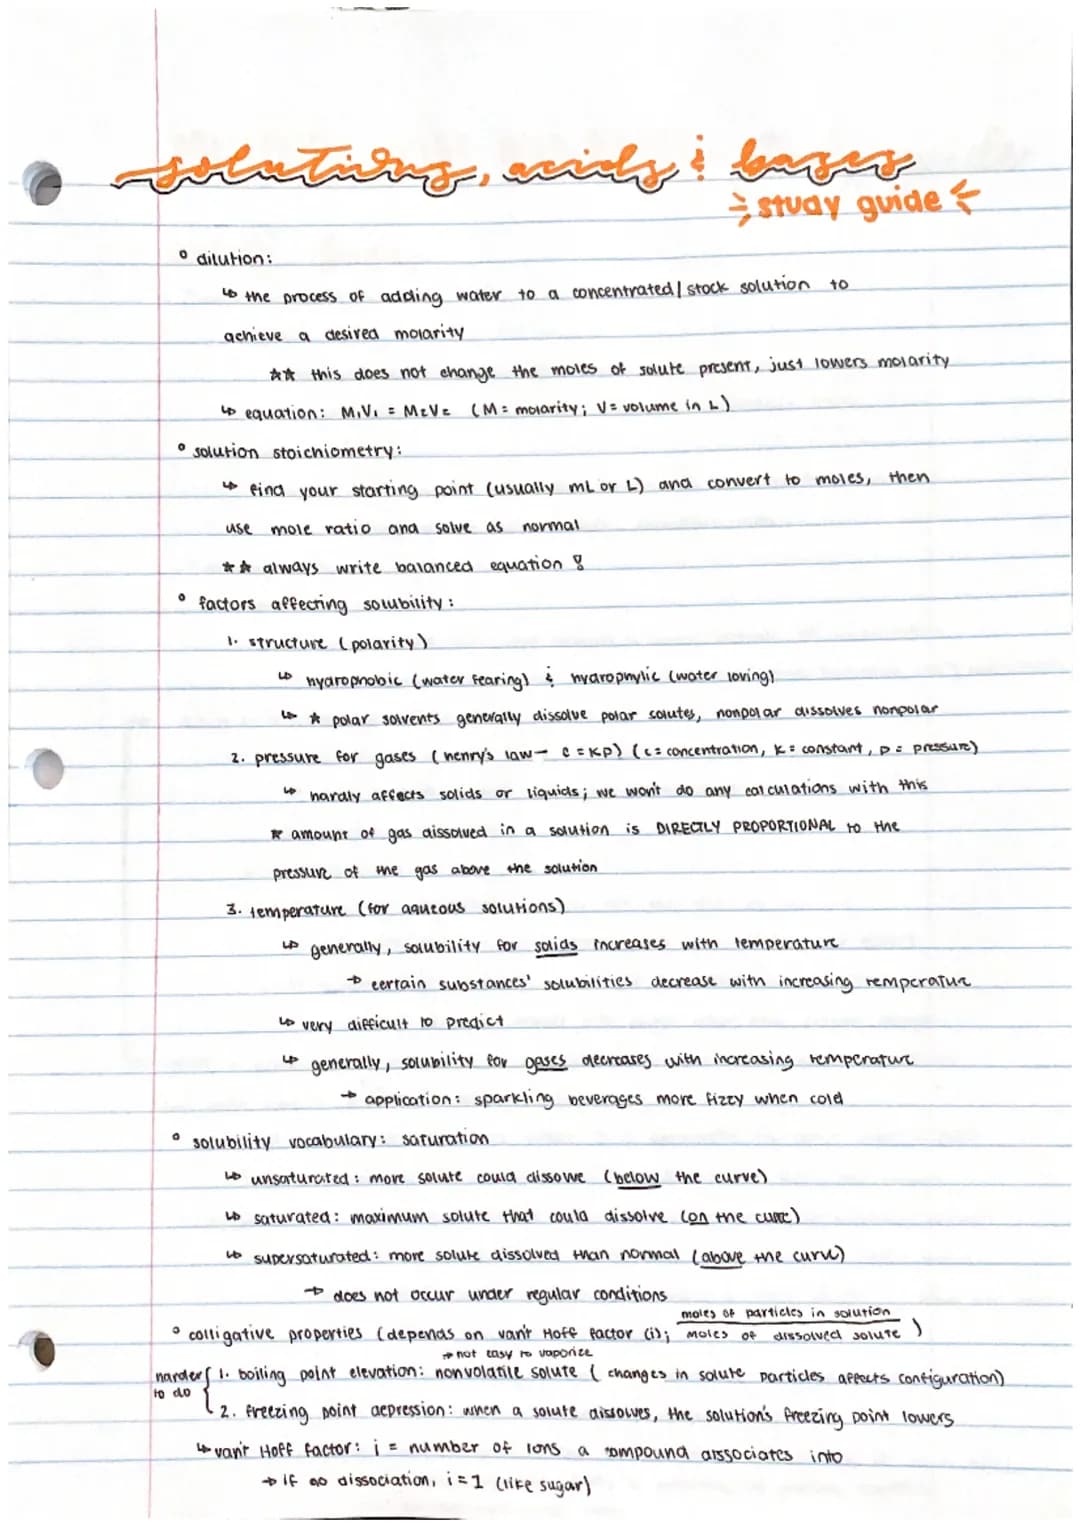 solutions, acids & bases
study guide
° dilution:
↳ the process of adding water to a concentrated/stock solution to
achieve a desired molarity
** this does not change the moles of solute present, just lowers molarity
↳ equation: M₁V₁ = M₂V₂ (M = molarity; V = volume in L)
° solution stoichiometry:
↳ find your starting point (usually mL or L) and convert to moles, then
use mole ratio and solve as normal
** always write balanced equation!
° factors affecting solubility:
1. structure (polarity)
↳ hydrophobic (water fearing) & hydrophylic (water loving)
↳ * polar solvents generally dissolve polar solutes, nonpolar dissolves nonpolar
2. pressure for gases (henry's law - C = KP) (C = concentration, K = constant, P = pressure)
↳ hardly affects solids or liquids; we won't do any calculations with this
* amount of gas dissolved in a solution is DIRECTLY PROPORTIONAL to the
pressure of the gas above the solution
3. temperature (for aqueous solutions)
↳ generally, solubility for solids increases with temperature
→ certain substances' solubilities decrease with increasing temperature
↳ very difficult to predict
↳ generally, solubility for gases decreases with increasing temperature
→ application: sparkling beverages more fizzy when cold
° solubility vocabulary: saturation
↳ unsaturated: more solute could dissolve (below the curve)
↳ saturated: maximum solute that could dissolve (on the curve)
↳ supersaturated: more solute dissolved than normal (above the curve)
→ does not occur under regular conditions
° colligative properties (depends on van't Hoff factor (i); moles of particles in solution / moles of dissolved solute)
→ not easy to vaporize
harder to do { 1. boiling point elevation: nonvolatile solute (changes in solute particles affects configuration)
2. freezing point depression: when a solute dissolves, the solution's freezing point lowers
↳ van't Hoff factor: i = number of ions a compound dissociates into
→ if no dissociation, i = 1 (like sugar)